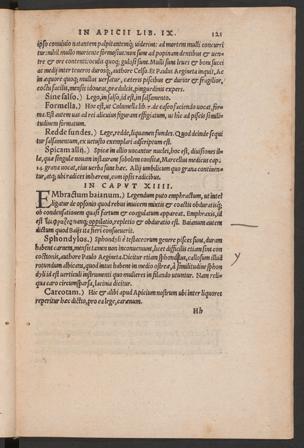 IN APICII LIB. IX. 121
ipso conuiuio natantem palpitantemq; uiderim: ad mortem multi concurri
tur: nihil mullo moriente formosius: non sunt ad popinam dentibus & uen-
tre & ore contenti: oculis quoq; gulosi sunt. Mulli sunt leues & boni succi
ac medij inter teneros durosq; authore Celso. Et Paulus Aegineta inquit, hæ
in æquore quoq; mullus uersatur, uerùm cæteris piscibus & durior & fragilior,
coctu facilis, mensæ idoneus, prædulcis, pinguribus expers.
Sine salso.) Lego, in salso, id est, in salsamento.
Formella.) Hoc est, ut Columella lib. 7. de caseo faciendo uocat, for-
ma. Est autem uas ad rei alicuius figuram effigiatum, ut hic ad piscis simili-
tudinem formatum.
Redde fundes.) Lege, redde, liquamen fundes. Quod deinde sequi
tur salsamentum, ex uetusto exemplari adscriptum est.
Spicam allij.) Spicæ in allio uocantur nuclei, hoc est, diuisiones il-
læ, quæ singulæ notam instaurant sobolem consitæ, Marcellus medicus cap.
14. grana uocat, eius uerba sunt hæc. Allij umbilicum quo grana continen-
tur, atq; ubi radices inhærent, eam ipsis radicibus.
IN CAPVT XIIII.
Embractum baianum.) Legendum puto emphractum, ut intel
ligatur de opsonio quod rebus inuicem mixtis & coactis obduratisq;
ob condensationem quasi fartum & coagulatum appareat. Emphraxis, id
est oppilatio, repletio & obduratio est. Baianum autem
dictum quod Baiis ita fieri consueuerit.
Sphondylos.) Sphondyli è testaceorum genere pisces sunt, duram
habent carnem, mensæ tamen non inconueniunt, licet difficilis etiam sint con
coctionis, authore Paulo Aegineta. Dicitur etiam sphondylus, callosum illud
rotundum albicans, quod intus habent in medio ostreæ, à similitudine sphon
dyli id est uerticuli instrumenti quo mulieres in filando utuntur. Nam reli-
qua caro circumsparsa, lacinia dicitur.
Careotam.) Hic & alibi apud Apicium nostrum ubi inter liquores
reperitur hæc dictio, pro ea lege, carœnum.
Hh